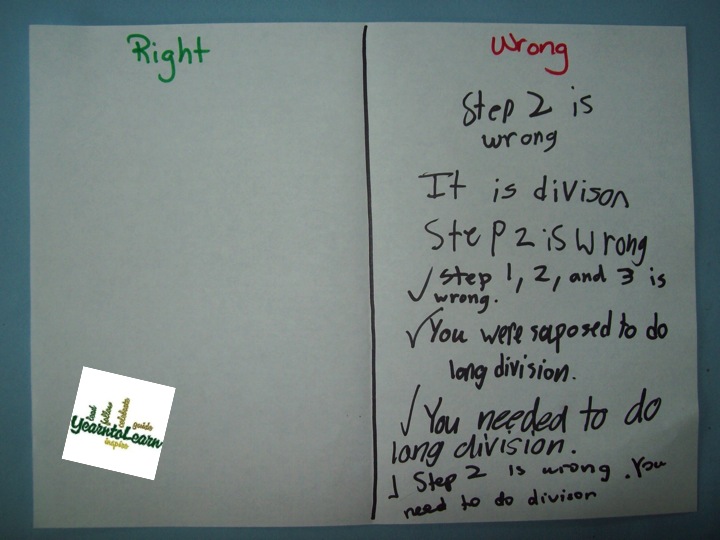 Right
Wrong
Step 2 is
wrong
It is divison
Step 2 is Wrong
✓ step 1, 2, and 3 is
wrong.
✓ You were saposed to do
long division.
✓ You needed to do
long division.
✓ Step 2 is wrong. You
need to do divison
lead follow celebrate guide
YearntoLearn
inspire